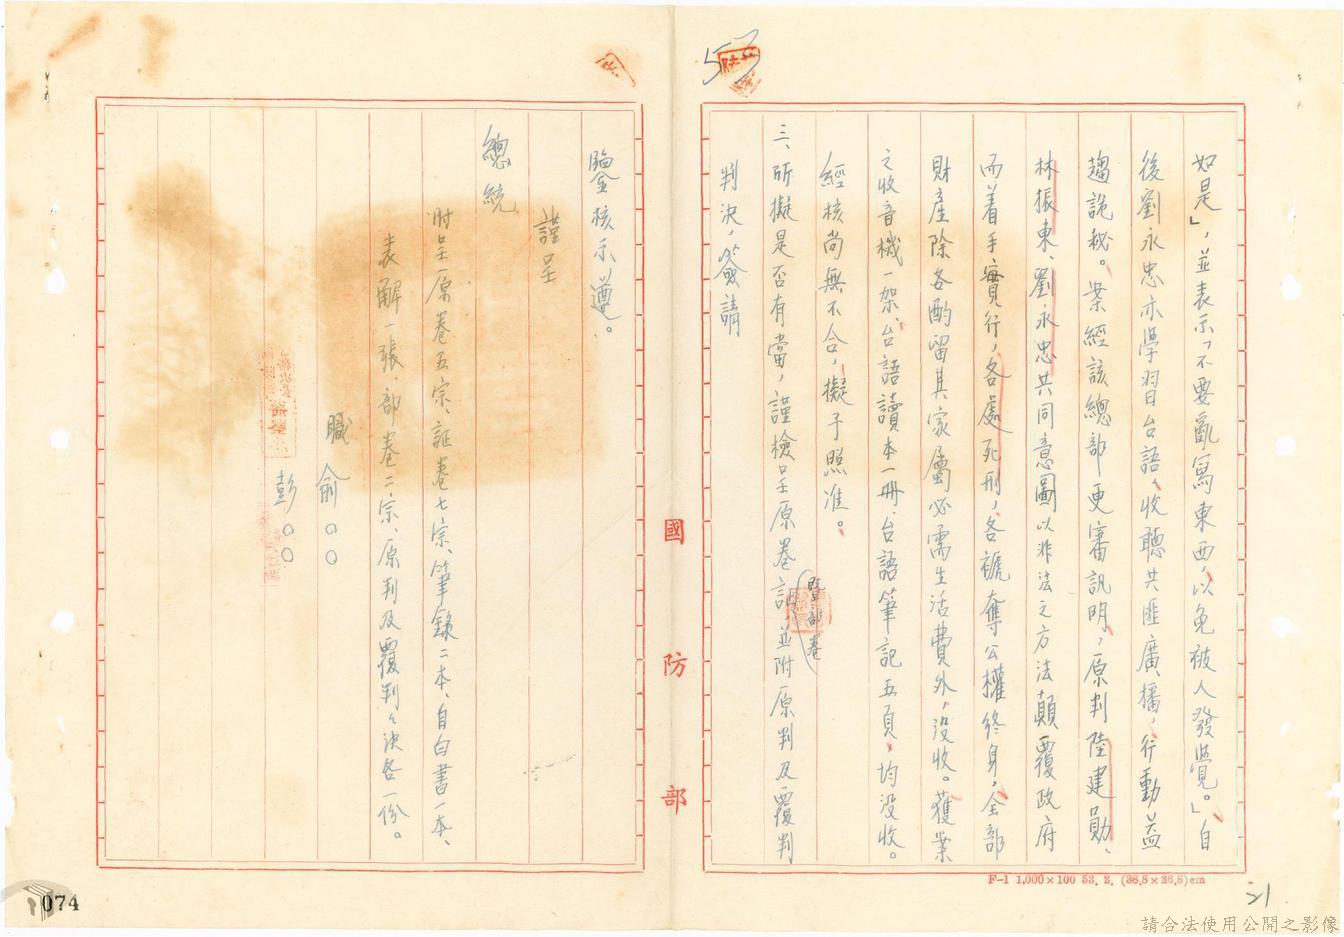 553
如是」，並表示「不要亂寫東西，以免被人發覺。」自
後劉永忠亦學習台語，收聽共匪廣播，行動益
趨詭秘。案經該總部更審訊明，原判陸建勛、
林振東、劉永忠共同意圖以非法之方法顛覆政府
而着手實行，各處死刑，各褫奪公權終身，全部
財產除各酌留其家屬必需生活費外，沒收。獲案
之收音機一架、台語讀本一冊、台語筆記五頁，均沒收。
經核尚無不合，擬予照准。
三、所擬是否有當，謹檢呈原卷証，並附原判及覆判
暨部卷
判決，簽請
國防部
鑒核示遵。
謹呈
總統
附呈原卷五宗、証卷七宗、筆錄二本、自白書一本、
表解一張、部卷二宗、原判及覆判判決各一份。
職 俞○○
彭○○
F-1 1,000×100 53. 2. (36.8×26.8)cm
21
074
請合法使用公開之影像